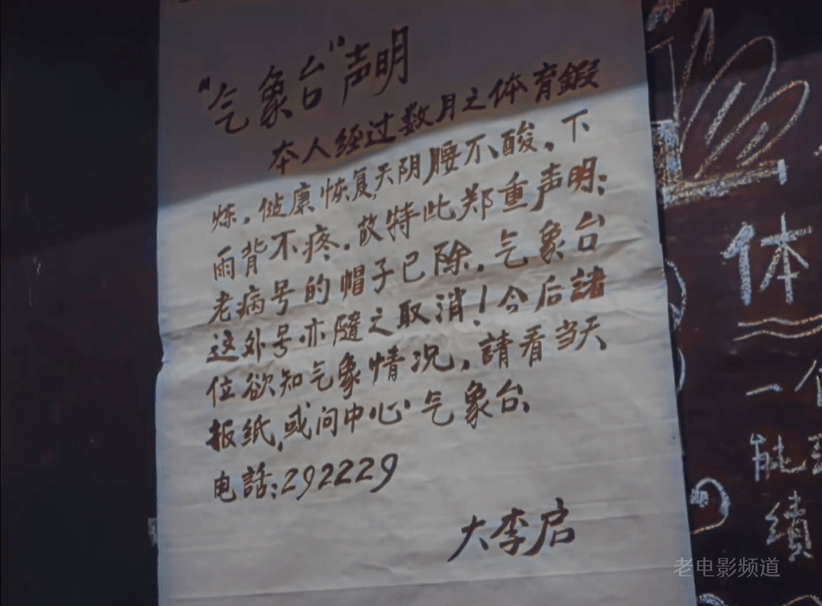 “气象台”声明
本人经过数月之体育鍜
炼，健康恢复,天阴腰不酸，下
雨背不疼，故特此郑重声明：
老病号的帽子已除，气象台
这外号亦隨之取消！今后諸
位欲知气象情况，請看当天
报纸,或问中心气象台,
电話:292229
大李启
体
一个
能
績
老电影频道